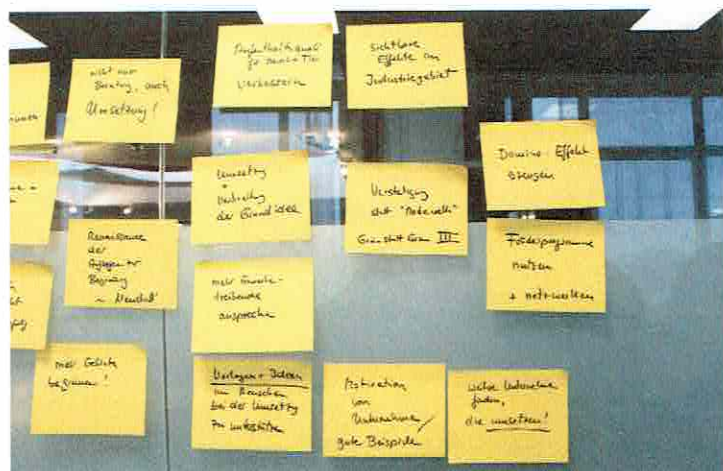 nicht nur
Beratung, auch
Umsetzung!
Aufenthaltsqual.
für Mensch + Tier
verbessern
sichtbare
Effekte im
Industriegebiet
Umsetzung
+
Verbreitung
der Grundidee
Verstetigung
statt
Grün statt Grau III
Domino-Effekt
erzeugen
Renaissance
der
Begrünung
mehr Gewerbe-
treibende
ansprechen
Förderprogramme
nutzen
+ netzwerken
mehr
beginnen!
+ Ideen
um Menschen
bei der Umsetzung
zu unterstützen
Motivation
von
Unternehmen/
gute Beispiele
weitere Unternehmen
finden,
die umsetzen!